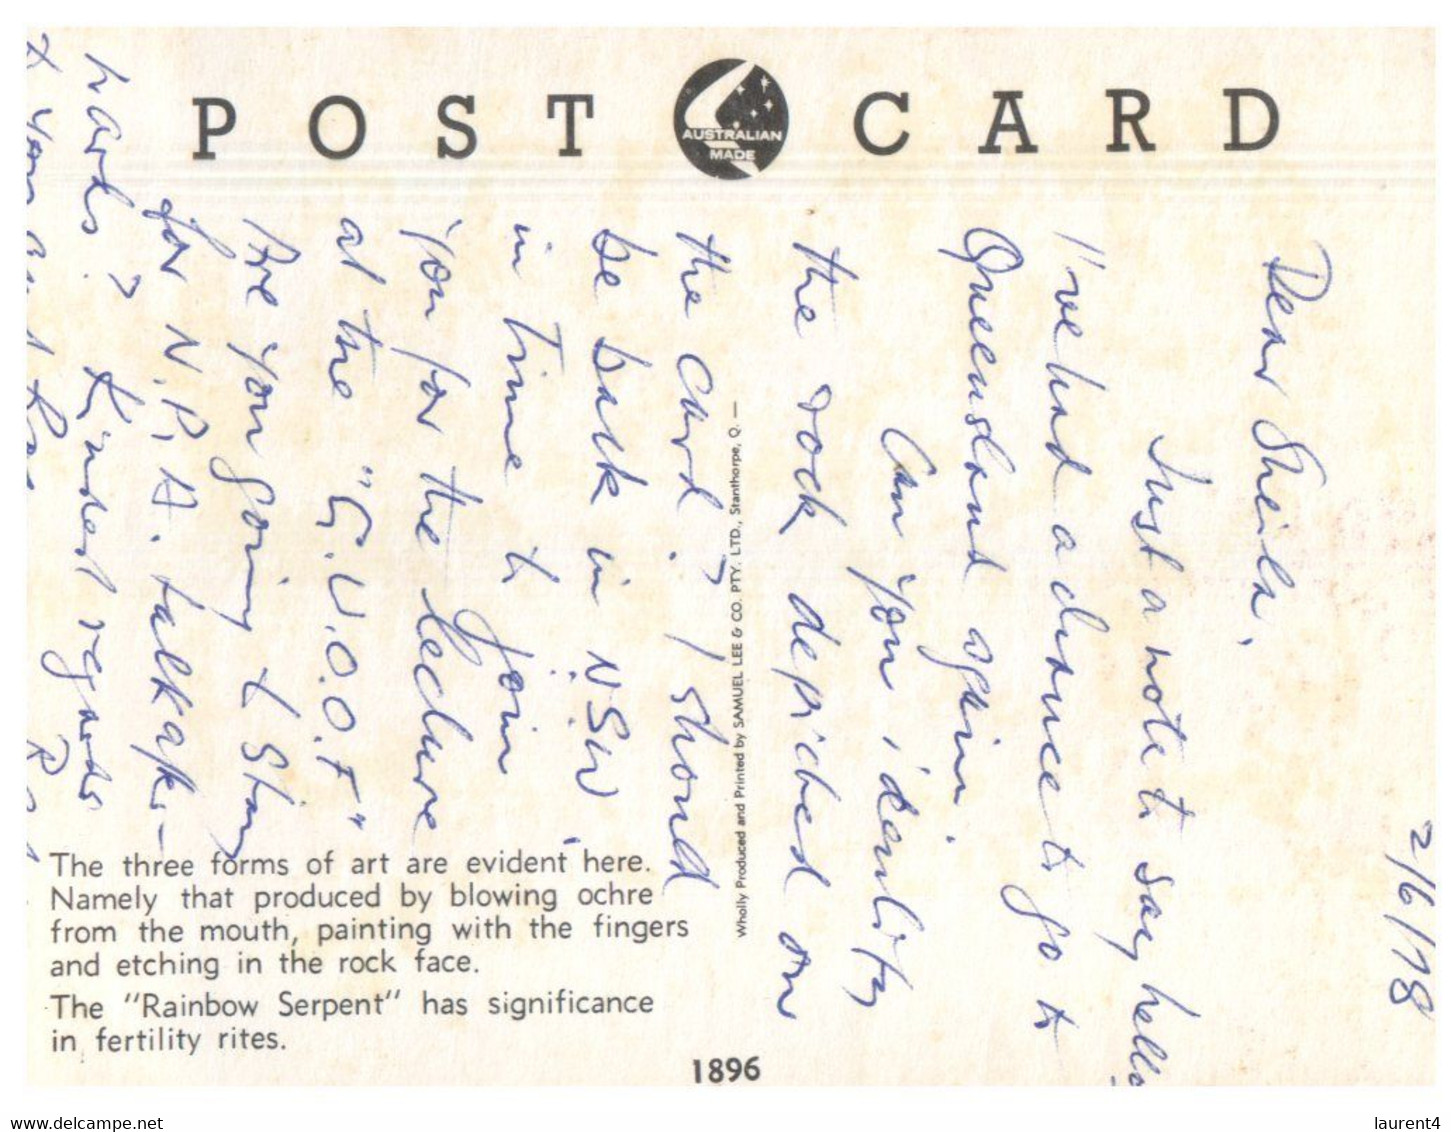 POST CARD
AUSTRALIAN
MADE
2/6/78
Dear Sheila,
Just a note to say hello
I've had a chance to go to
Queensland again.
Can you identity
the rock depicted on
the card? I should
be back in NSW
in time to join
you for the lecture
at the "G.U.O.O.F"
Are you going to stay
for N.P.A. talk after-
wards? Kindest regards
to you and
The three forms of art are evident here.
Namely that produced by blowing ochre
from the mouth, painting with the fingers
and etching in the rock face.
The "Rainbow Serpent" has significance
in fertility rites.
Wholly Produced and Printed by SAMUEL LEE & CO. PTY. LTD., Stanthorpe, Q. —
1896
www.delcampe.net
laurent4